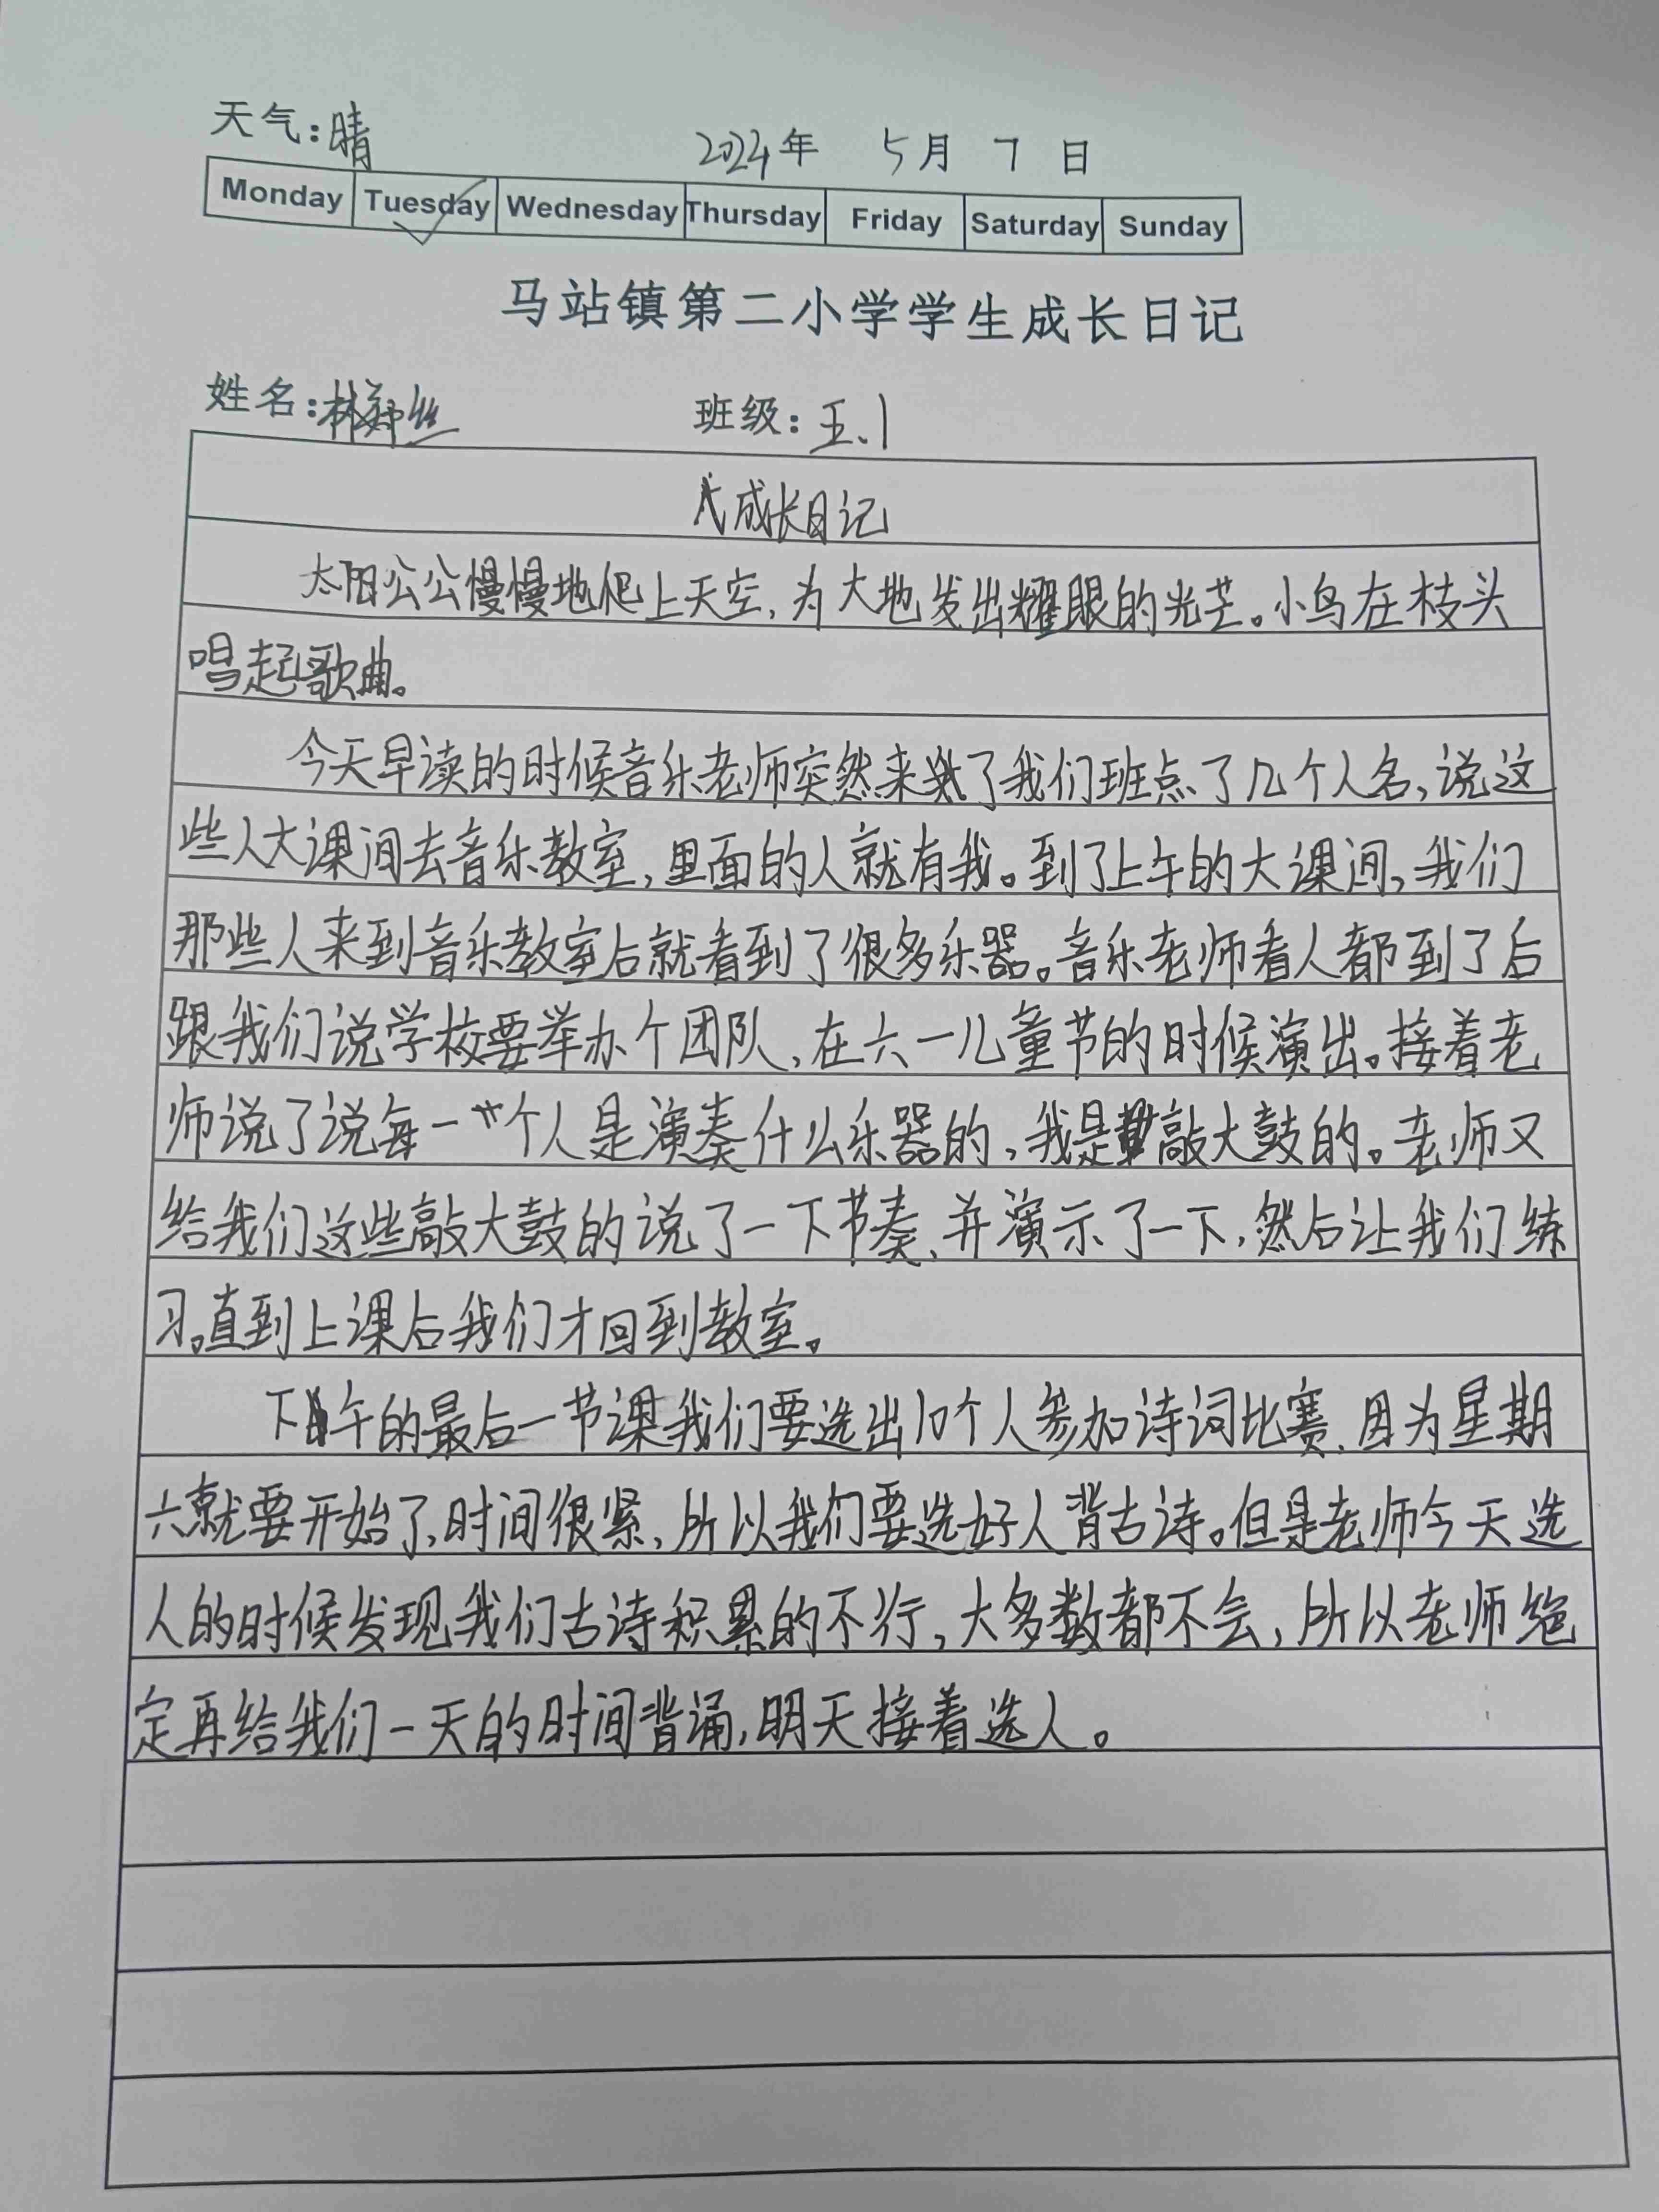 天气：晴 2024年 5月 7日
Monday Tuesday Wednesday Thursday Friday Saturday Sunday
马站镇第二小学学生成长日记
姓名：林 班级：五、1
成长日记
太阳公公慢慢地爬上天空，为大地发出耀眼的光芒。小鸟在枝头
唱起歌曲。
今天早读的时候音乐老师突然来了我们班点了几个人名，说这
些人大课间去音乐教室，里面的人就有我。到了上午的大课间，我们
那些人来到音乐教室后就看到了很多乐器。音乐老师看人都到了后
跟我们说学校要举办个团队，在六一儿童节的时候演出。接着老
师说了说每一个人是演奏什么乐器的，我是敲大鼓的。老师又
给我们这些敲大鼓的说了一下节奏，并演示了一下，然后让我们练
习。直到上课后我们才回到教室。
下午的最后一节课我们要选出10个人参加诗词比赛，因为星期
六就要开始了，时间很紧，所以我们要选好人背古诗。但是老师今天选
人的时候发现我们古诗积累的不行，大多数都不会，所以老师绝
定再给我们一天的时间背诵，明天接着选人。